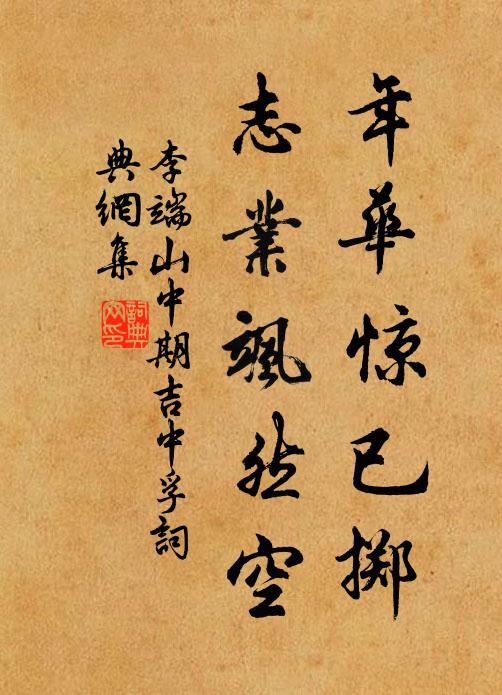 年華惊已擲
志業颯然空
李端山中期吉中孚詞
典網集
詞典
网印